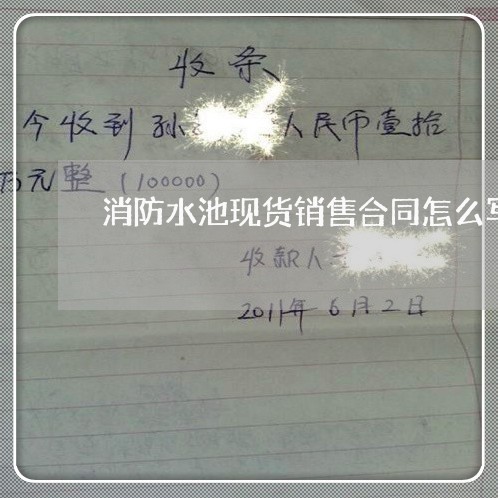 收条
今收到孙 人民币壹拾
万元整(100000)
消防水池现货销售合同怎么写
收款人
2011年6月2日